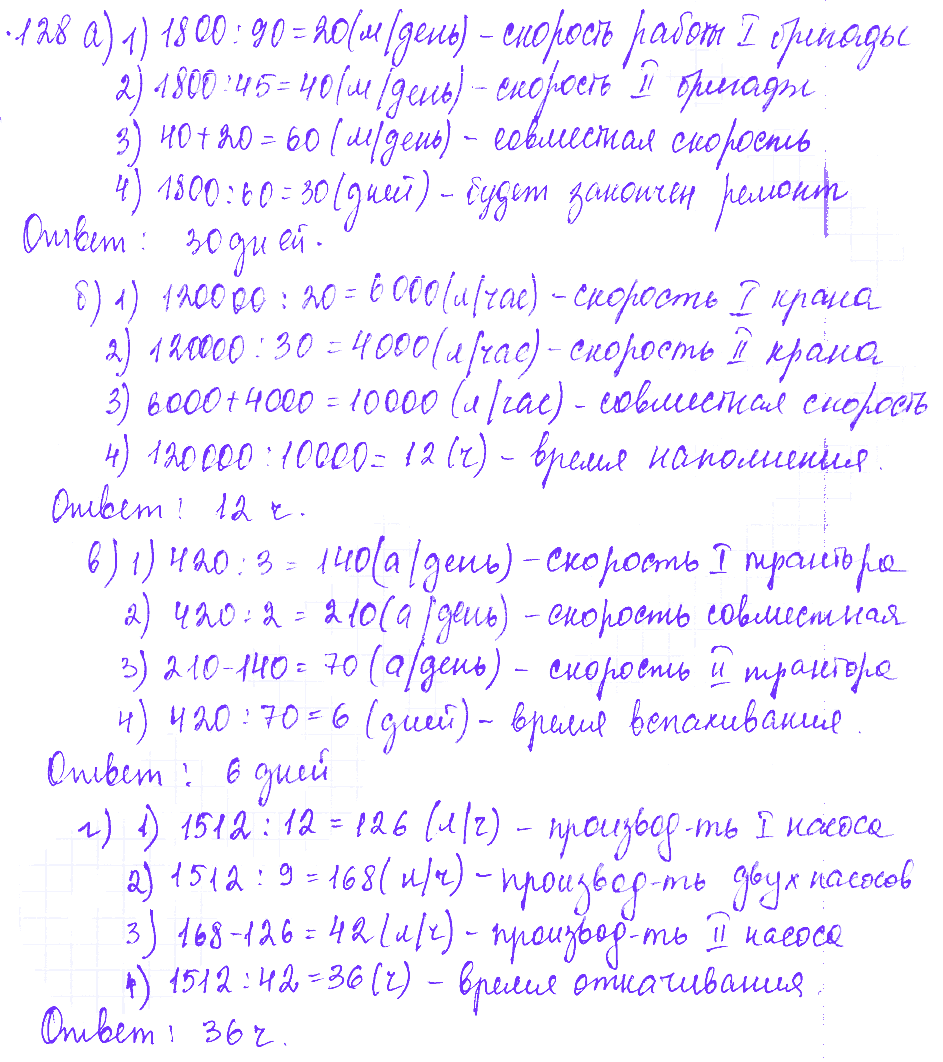 128 а) 1) 1800 : 90 = 20 (м/день) – скорость работы I бригады
2) 1800 : 45 = 40 (м/день) – скорость II бригады
3) 40 + 20 = 60 (м/день) – совместная скорость
4) 1800 : 60 = 30 (дней) – будет закончен ремонт
Ответ: 30 дней.
б) 1) 120000 : 20 = 6000 (л/час) – скорость I крана
2) 120000 : 30 = 4000 (л/час) – скорость II крана
3) 6000 + 4000 = 10000 (л/час) – совместная скорость
4) 120000 : 10000 = 12 (ч) – время наполнения.
Ответ: 12 ч.
в) 1) 420 : 3 = 140 (а/день) – скорость I трактора
2) 420 : 2 = 210 (а/день) – скорость совместная
3) 210 – 140 = 70 (а/день) – скорость II трактора
4) 420 : 70 = 6 (дней) – время вспахивания.
Ответ: 6 дней
г) 1) 1512 : 12 = 126 (л/ч) – производ-ть I насоса
2) 1512 : 9 = 168 (л/ч) – производ-ть двух насосов
3) 168 – 126 = 42 (л/ч) – производ-ть II насоса
4) 1512 : 42 = 36 (ч) – время откачивания.
Ответ: 36 ч.